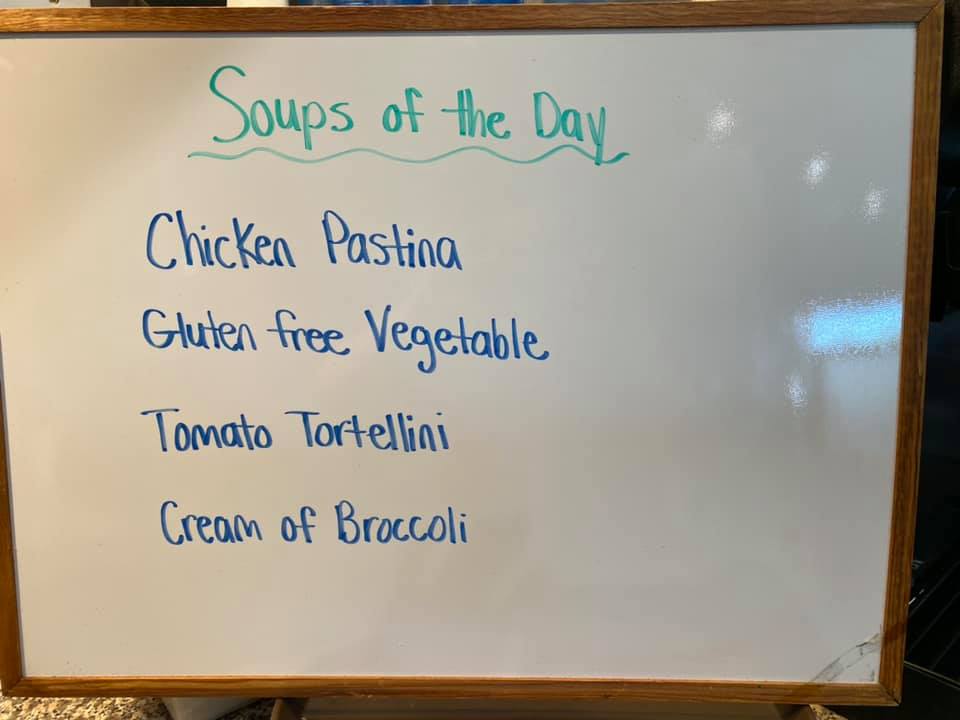 Soups of the Day
Chicken Pastina
Gluten free Vegetable
Tomato Tortellini
Cream of Broccoli